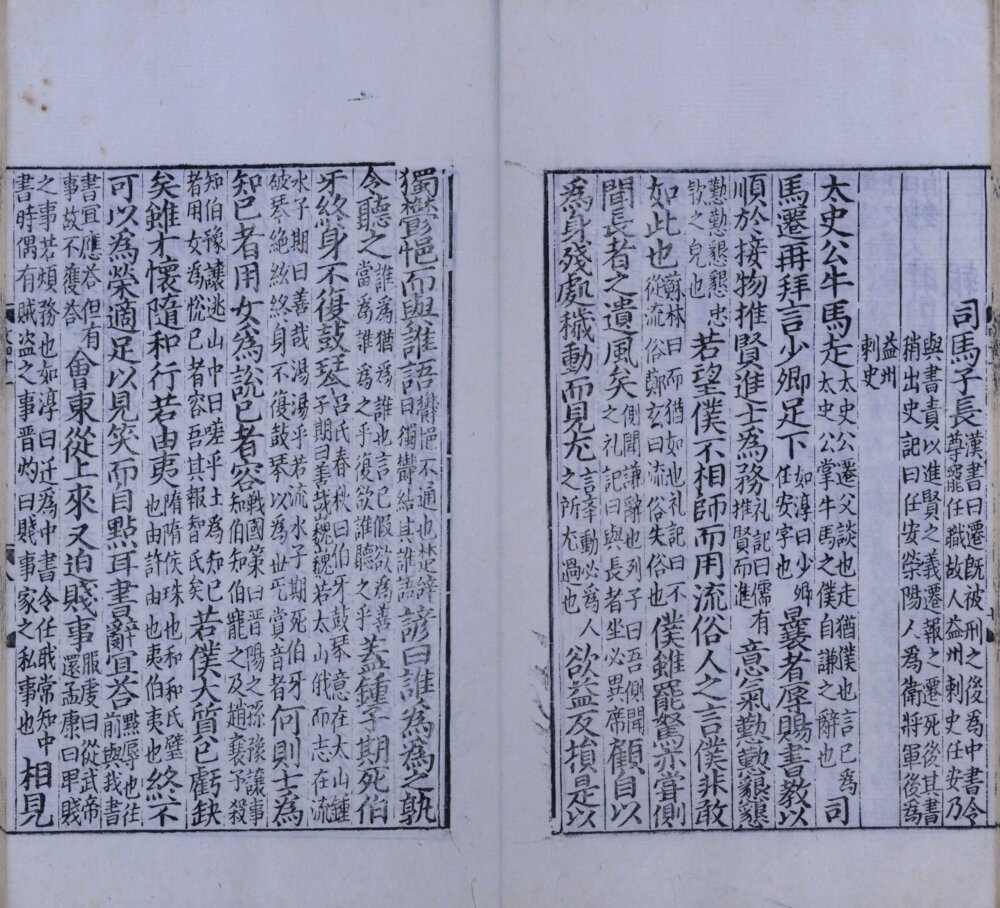 司馬子長漢書曰遷既被刑之後為中書令尊寵任職故人益州刺史任安乃
與書責以進賢之義遷報之遷死後其書稍出史記曰任安滎陽人為衛將軍後為
益州刺史
太史公牛馬走太史公遷父談也走猶僕也言己為太史公掌牛馬之僕自謙之辭也司
馬遷再拜言少卿足下如淳曰少卿任安字也曩者辱賜書教以
順於接物推賢進士為務礼記曰儒有推賢而進意氣懃懃懇懇
懃懃懇懇忠欵之皃也若望僕不相師而用流俗人之言僕非敢
如此也蘇林曰而猶如也礼記曰不從流俗鄭玄曰流俗失俗也僕雖罷駑亦嘗側
聞長者之遺風矣側聞謙辭也列子曰吾側聞之礼記曰與長者坐必異席顧自以
為身殘處穢動而見尤言舉動必為人之所尤過也欲益反損是以
獨欝悒而與誰語欝悒不通也楚辭曰獨欝結其誰語諺曰誰為為之孰
令聽之誰為猶為誰也言己假欲為善當為誰為之乎復欲誰聽之乎蓋鍾子期死伯
牙終身不復鼓琴吕氏春秋曰伯牙鼓琴意在太山鍾子期曰善哉巍巍若太山俄而志在流
水子期曰善哉湯湯乎若流水子期死伯牙破琴絶絃終身不復鼓琴以為世無賞音者何則士為
知己者用女為說己者容戰國策曰晋陽之孫豫讓事知伯知伯寵之及趙襄子殺
知伯豫讓逃山中曰嗟乎士為知己者用女為恱己者容吾其報智氏矣若僕大質已虧缺
矣雖才懷隨和行若由夷隋隋侯珠也和和氏璧也由許由也夷伯夷也終不
可以為榮適足以見笑而自點耳書辭宜荅點辱也往前與我書
書宜應荅但有事故不獲荅會東從上來又迫賤事服虔曰從武帝還孟康曰卑賤
之事若煩務也如淳曰迁為中書令任職常知中書時偶有賊盗之事晋灼曰賤事家之私事也相見